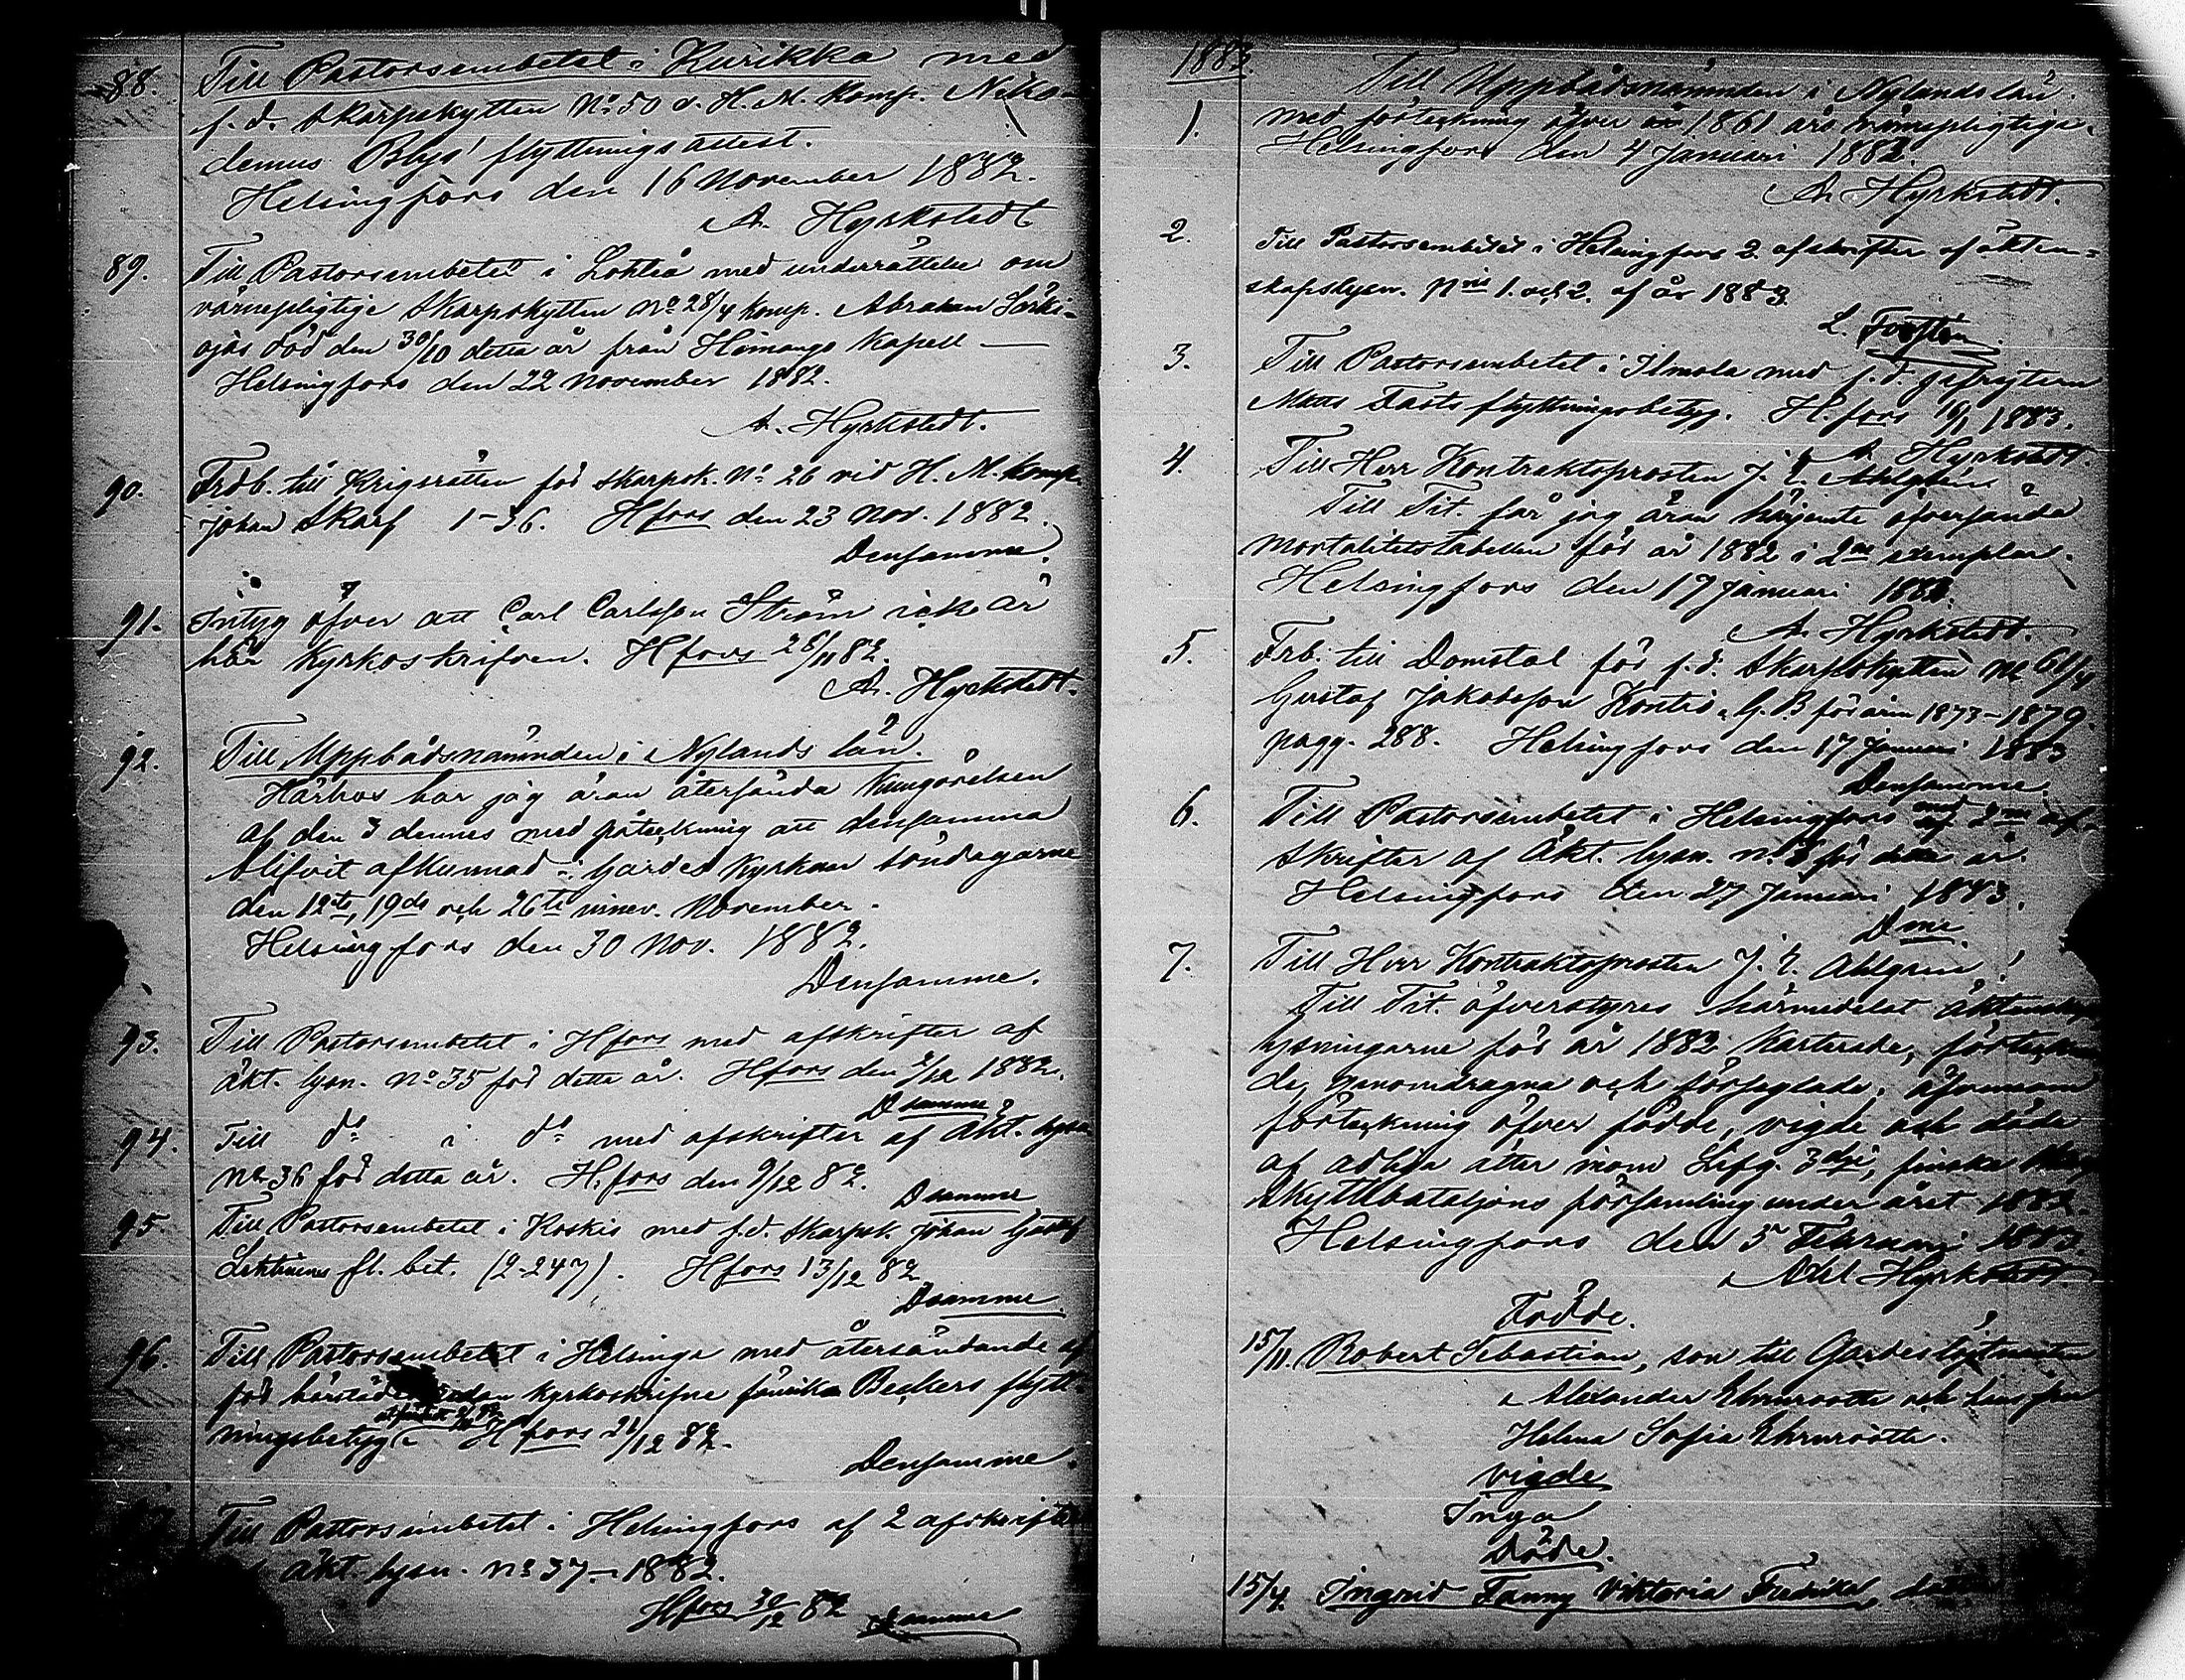 88. Till Pastorsembetet i Kurikka med
f. d. Skarpskytten No 50 v. H. M. Komp. Niko-
demus Blys' flyttningsattest.
Helsingfors den 16 November 1882.
A. Hyrkstedt
89. Till Pastorsembetet i Lohteå med underrättelse om
värnepligtige Skarpskytten No 28/4 komp. Abraham Särki-
ojas död den 30/10 detta år från Himango Kapell —
Helsingfors den 22 November 1882.
A. Hyrkstedt.
90. Frdb. till Krigsrätten för skarpsk. No 26 vid H. M. Komp.
Johan Skarf 1-36. Hfors den 23 Nov. 1882.
Densamme.
91. Intyg öfver att Carl Carlsson Ström icke är
här Kyrkoskrifven. Hfors 28/11 82.
A. Hyrkstedt.
92. Till Uppbådsnämnden i Nylands län.
Härhos har jag äran återsända Kungörelsen
af den 3 dennes med påteckning att densamma
blifvit afkunnad i Gardes Kyrkan söndagarne
den 12te, 19de och 26te innev. November.
Helsingfors den 30 Nov. 1882.
Densamme.
93. Till Pastorsembetet i Hfors med afskrifter af
äkt. lysn. No 35 för detta år. Hfors den 2/12 1882.
Dsamme
94. Till do i do med afskrifter af Äkt. lysn.
No 36 för detta år. H.fors den 9/12 82.
Dsamme
95. Till Pastorsembetet i Koskis med f.d. Skarpsk. Johan Gustaf
fl. bet. (2-247). Hfors 13/12 82
Dsamme
96. Till Pastorsembetet i Helsinge med återsändande af
för härstädes kyrkoskrifne fänrika Beckers flytt-
ningsbetyg Hfors 21/12 82.
Densamme.
Till Pastorsembetet i Helsingfors af 2 afskrifter
äkt. lysn. No 37 - 1882.
Hfors 30/12 82 Dsamme
1883.
Till Uppbådsnämnden i Nylands län
1. med förteckning öfver 1861 års värnepligtiga.
Helsingfors den 4 Januari 1883.
A. Hyrkstedt.
2. Till Pastorsembetet i Helsingfors 2 afskrifter af äkten-
skapslysn. Nris 1. och 2. af år 1883.
L. Forstén
3. Till Pastorsembetet i Ilmola med f. d. gefrejtern
Matts Fasts flyttningsbetyg. H.fors 16/1 1883.
A. Hyrkstedt.
4. Till Herr Kontraktsprosten J. E. Ahlgren
Till Tit. får jag äran härjemte öfversända
Mortalitetstabellen för år 1882 i 2ne exemplar.
Helsingfors den 17 Januari 1883.
A. Hyrkstedt.
5. Frb. till Domstol för f. d. Skarpskytten No 61/4
Gustaf Jakobsson Kontio, G. B. för åren 1873-1879.
pagg. 288. Helsingfors den 17 Januari 1883
Densamme.
6. Till Pastorsembetet i Helsingfors med 2ne af-
skrifter af Äkt. lysn. n. 3 för detta år.
Helsingfors den 27 Januari 1883.
Dme
7. Till Herr Kontraktsprosten J. E. Ahlgren!
Till Tit. öfverstyres härmedelst äktenskaps
lysningarne för år 1882 Karterade, förteckna
de, genomdragna och förseglade, äfvensom
förteckning öfver födde, vigde och döde
af adliga ätter inom Lifg. 3dje, finska Skarp
skyttebataljons församling under året 1882.
Helsingfors den 5 Februari 1883.
Axel Hyrkstedt
Födde.
15/11. Robert Sebastian, son till Gardeslöjtnanten
Alexander Ehrnrooth och hans fru
Helena Sofia Ehrnrooth.
Vigde
Inga
Döde.
15/4. Ingrid Fanny Viktoria Fredrika, dotter